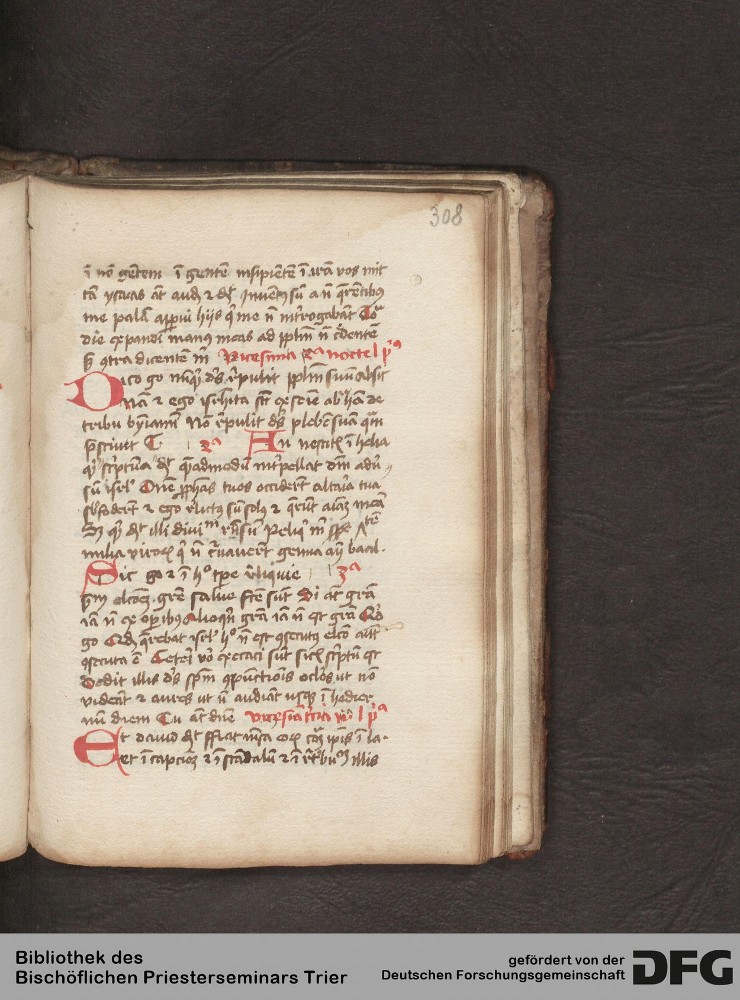 308
ī nō gētem ī gentē insipiētē ī irā vos mit
tā ysaias āt aud₇ ⁊ dt Inuētꝰ sū a ñ q̄rētibꝰ
me palā appui hijs q̄ me ñ int'rogabāt
die expandi manꝰ meas ad pplm ñ c̄dentē
s₇ 9tradicentē m̄ Vicesima nocte l p̄ᵃ
Dico go nūq̄d dꝰ rpulit pplm suū absit
Nā ⁊ ego isrhlita sū ex semīe abrhā de
tribu bynamī Nō rpulit dꝰ plebē suā quā
p̄sciuit T 2ᵃ An nescitis ī helia
qd scptura dt quēadmodū int'pellat dm adu'
sū isrl Dne pphas tuos occidert altaria tua
suffodert ⁊ ego relictꝰ sū solꝰ ⁊ q̄rūt aīam meā
S₇ qd dt illi diuīm rn̄sū Reliq m̄ septē
milia viroꝝ q̄ ñ c̄uauert genua an̄ baal.
Sic go ⁊ ī hᵒ tpe reliquie 3ᵃ
scdm elcōem grē salue fcē sūt Si āt grā
iā ñ ex opibꝰ Alioqn grā iā ñ est grā Qd
go Qd q̄rebat isrl hᵒ ñ est 9secutꝰ elcō aūt
9secuta ē Ceteri vō excecati sūt sicut scptū est
Dedit illis dꝰ spm 9punctiois oclos ut nō
videāt ⁊ aures ut ñ audiāt usqꝫ ī hodier
nū diem Tu āt dne vicesima tercia l p̄ᵃ
Et dauid dt ffiat mēsa eoꝝ corā ipis ī la-
q̄ et ī capcōem ⁊ ī scādalū ⁊ ī ret'buc illis
Bibliothek des
Bischöflichen Priesterseminars Trier
gefördert von der
Deutschen Forschungsgemeinschaft
DFG